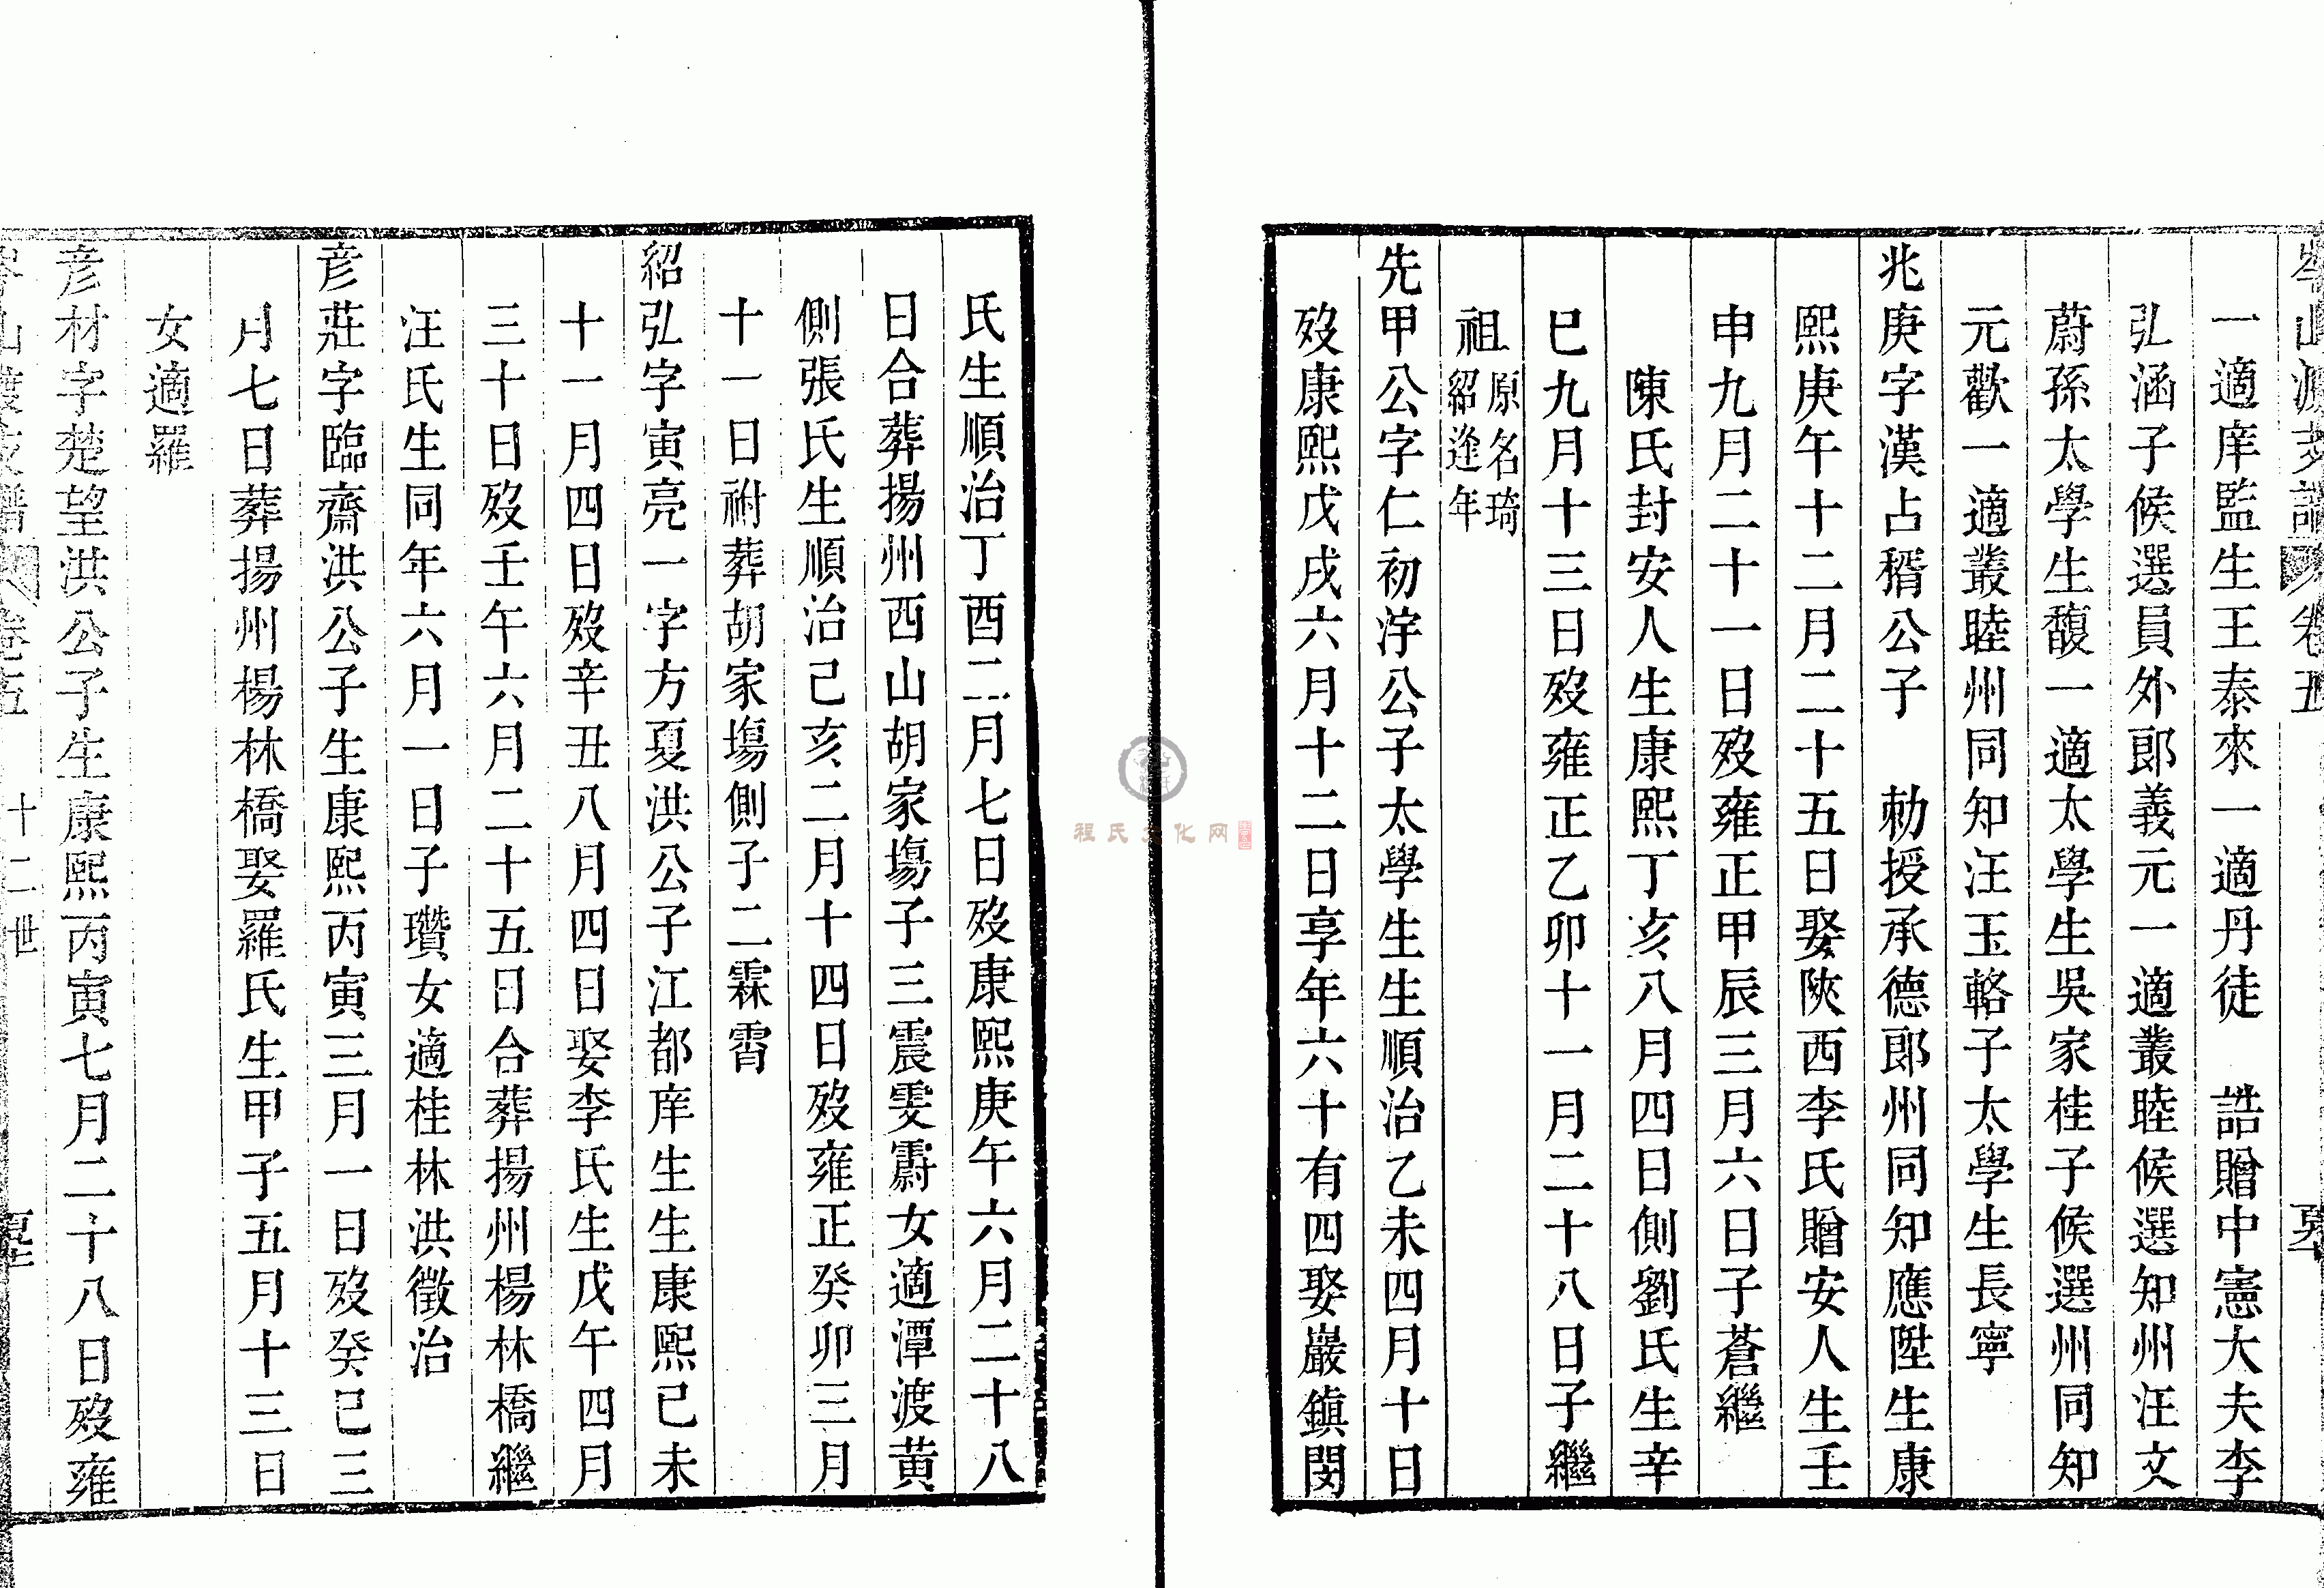 岑山渡支譜 卷五
一適庠監生王泰來一適丹徒 誥贈中憲大夫李
弘涵子候選員外郎義元一適叢睦候選知州汪文
蔚孫太學生馥一適太學生吳家桂子候選州同知
元歡一適叢睦州同知汪玉輅子太學生長寧
兆庚字漢占稰公子 勅授承德郎州同知應陞生康
熙庚午十二月二十五日娶陝西李氏贈安人生壬
申九月二十一日歿雍正甲辰三月六日子蒼繼
陳氏封安人生康熙丁亥八月四日側劉氏生辛
巳九月十三日歿雍正乙卯十一月二十八日子繼
祖原名琦紹逢年
先甲公字仁初浡公子太學生生順治乙未四月十日
歿康熙戊戌六月十二日享年六十有四娶巖鎮閔
氏生順治丁酉二月七日歿康熙庚午六月二十八
日合葬揚州西山胡家塲子三震雯霨女適潭渡黃
側張氏生順治己亥二月十四日歿雍正癸卯三月
十一日祔葬胡家塲側子二霖霄
紹弘字寅亮一字方夏洪公子江都庠生生康熙己未
十一月四日歿辛丑八月四日娶李氏生戊午四月
三十日歿壬午六月二十五日合葬揚州楊林橋繼
汪氏生同年六月一日子瓚女適桂林洪徵治
彦莊字臨齋洪公子生康熙丙寅三月一日歿癸巳三
月七日葬揚州楊林橋娶羅氏生甲子五月十三日
女適羅
彦材字楚望洪公子生康熙丙寅七月二十八日歿雍
岑山渡支譜 卷五 十二世
程氏文化网